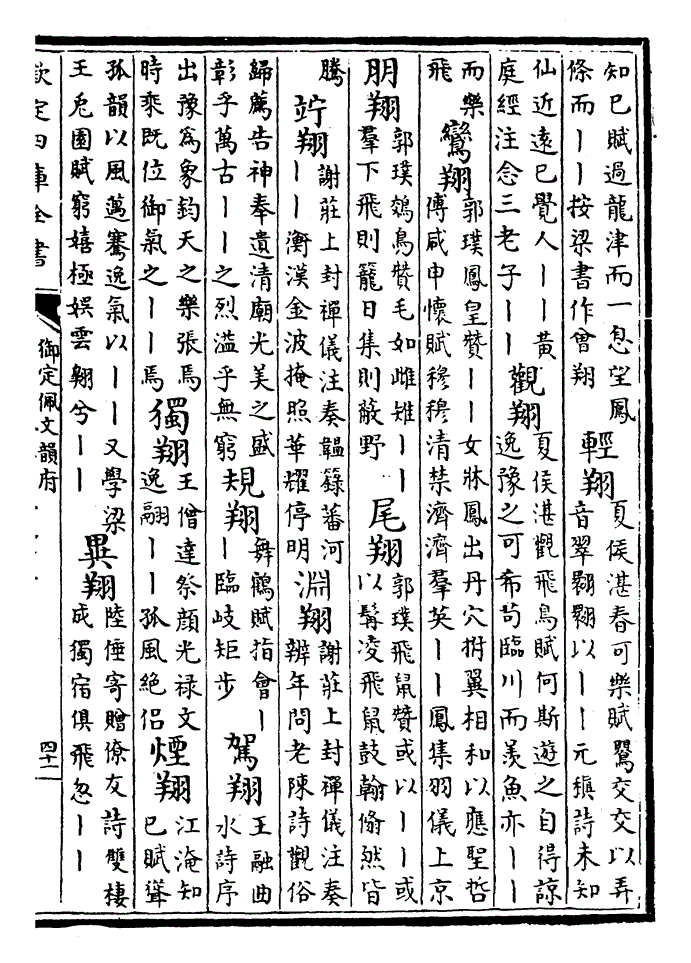 知已賦過龍津而一息望鳳
條而丨丨按梁書作曾翔
輕翔
夏侯湛春可樂賦鸎交交以弄
音翠翾翾以丨丨元稹詩未知
仙近遠已覺人丨丨黃
庭經注念三老子丨丨
觀翔
夏侯湛觀飛鳥賦何斯遊之自得諒
逸豫之可希苟臨川而羨魚亦丨丨
而樂
飛
鸞翔
郭璞鳳皇贊丨丨女牀鳳出丹穴拊翼相和以應聖哲
傅咸申懷賦穆穆清禁濟濟羣英丨丨鳳集羽儀上京
朋翔
郭璞鵽鳥贊毛如雌雉丨丨
羣下飛則籠日集則蔽野
尾翔
郭璞飛鼠贊或以丨丨或
以髯凌飛鼠鼓翰翛然皆
騰
竚翔
謝莊上封禪儀注奏韞籙蕃河
丨丨衡漢金波掩照華耀停明
淵翔
謝莊上封禪儀注奏
辨年問老陳詩觀俗
歸薦告神奉遺清廟光美之盛
彰乎萬古丨丨之烈溢乎無窮
規翔
舞鶴賦指會丨
丨臨岐矩步
駕翔
王融曲
水詩序
出豫為象鈞天之樂張焉
時乘既位御氣之丨丨焉
獨翔
王僧達祭顏光祿文
逸翮丨丨孤風絕侶
煙翔
江淹知
已賦聳
孤韻以風邁騫逸氣以丨丨又學梁
王兔園賦窮嬉極娛雲翱兮丨丨
異翔
陸倕寄贈僚友詩雙棲
成獨宿俱飛忽丨丨
欽定四庫全書
御定佩文韻府
四十二